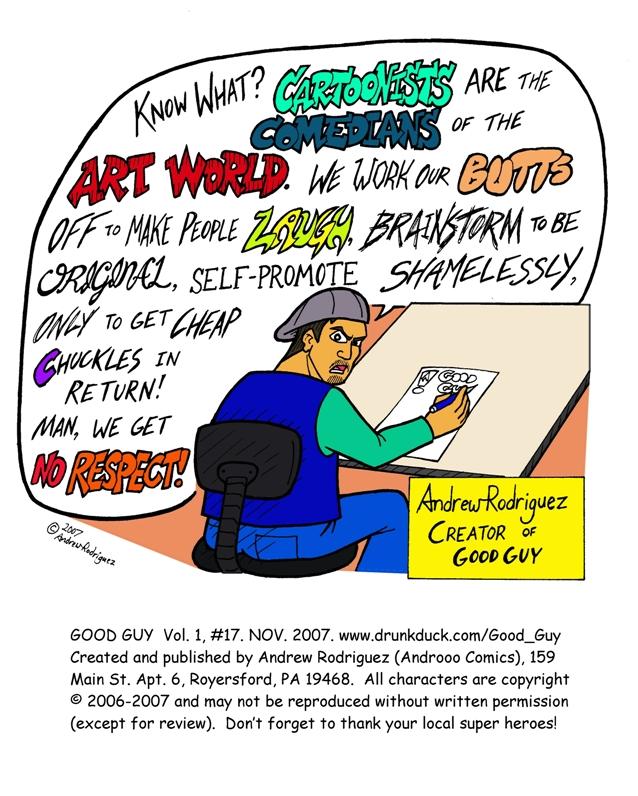 KNOW WHAT? CARTOONISTS ARE THE
COMEDIANS OF THE
ART WORLD. WE WORK OUR BUTTS
OFF TO MAKE PEOPLE LAUGH, BRAINSTORM TO BE
ORIGINAL, SELF-PROMOTE SHAMELESSLY,
ONLY TO GET CHEAP
CHUCKLES IN
RETURN!
MAN, WE GET
NO RESPECT!
GOOD
GUY
© 2007
Andrew Rodriguez
Andrew Rodriguez
CREATOR OF
GOOD GUY
GOOD GUY Vol. 1, #17. NOV. 2007. www.drunkduck.com/Good_Guy
Created and published by Andrew Rodriguez (Androoo Comics), 159
Main St. Apt. 6, Royersford, PA 19468. All characters are copyright
© 2006-2007 and may not be reproduced without written permission
(except for review). Don't forget to thank your local super heroes!